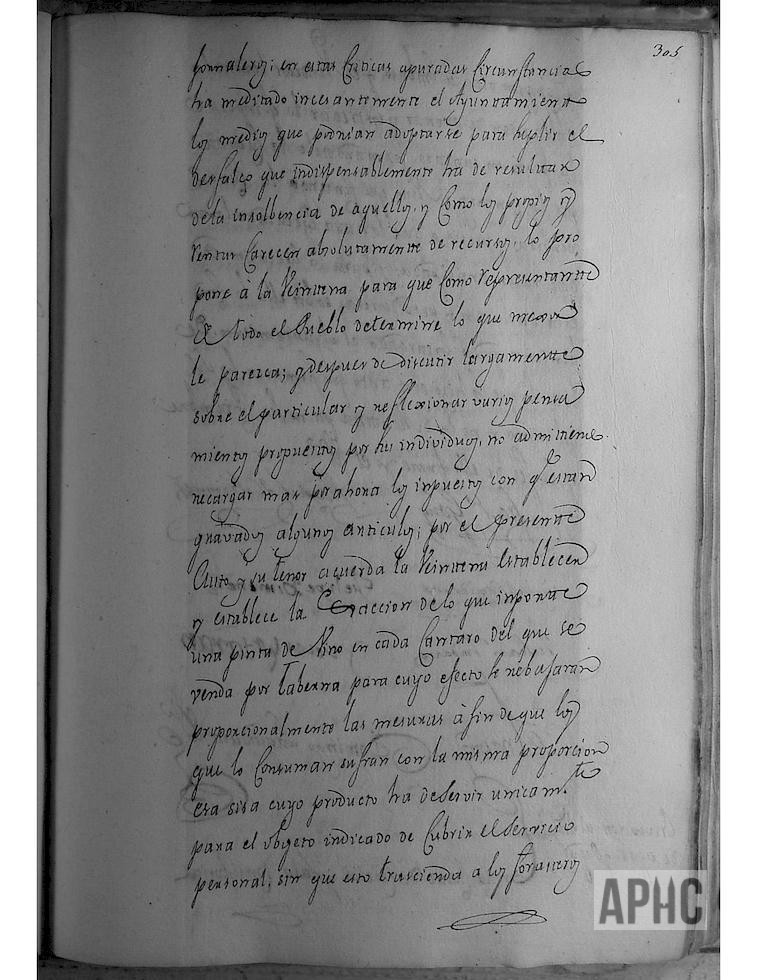 305
Jornaleros: en estas Criticas apuradas Circunstancias
ha meditado incesantemente el Ayuntamiento
los medios que podrian adoptarse para suplir el
desfalco que indispensablemente ha de resultar
dela insolbencia de aquellos, y Como los propios y
rentas Carecen absolutamente de recursos, lo pro
pone à la Veintena para que Como representante
de todo el Pueblo determine lo que mexor
le paresca; y despues de discutir largamente
sobre el particular y reflexionar varios pensa
mientos propuestos por sus individuos, no admitiendo
recargar mas por ahora los inpuestos con q.e estan
gravados algunos articulos; por el presente
Auto y su tenor acuerda la Veintena establecer
y establece la Exaccion delo que inporte
una pinta de Vino en cada Cantaro del que se
venda por taberna para cuyo efecto se rebajaran
proporcionalmente las mesuras à fin de que los
que lo Consuman sufran con la misma proporcion
esa sisa cuyo producto ha de Servir unicam.te
para el obgeto indicado de Cubrir el Servicio
personal, sin que esto trascienda a los forasteros
APHC